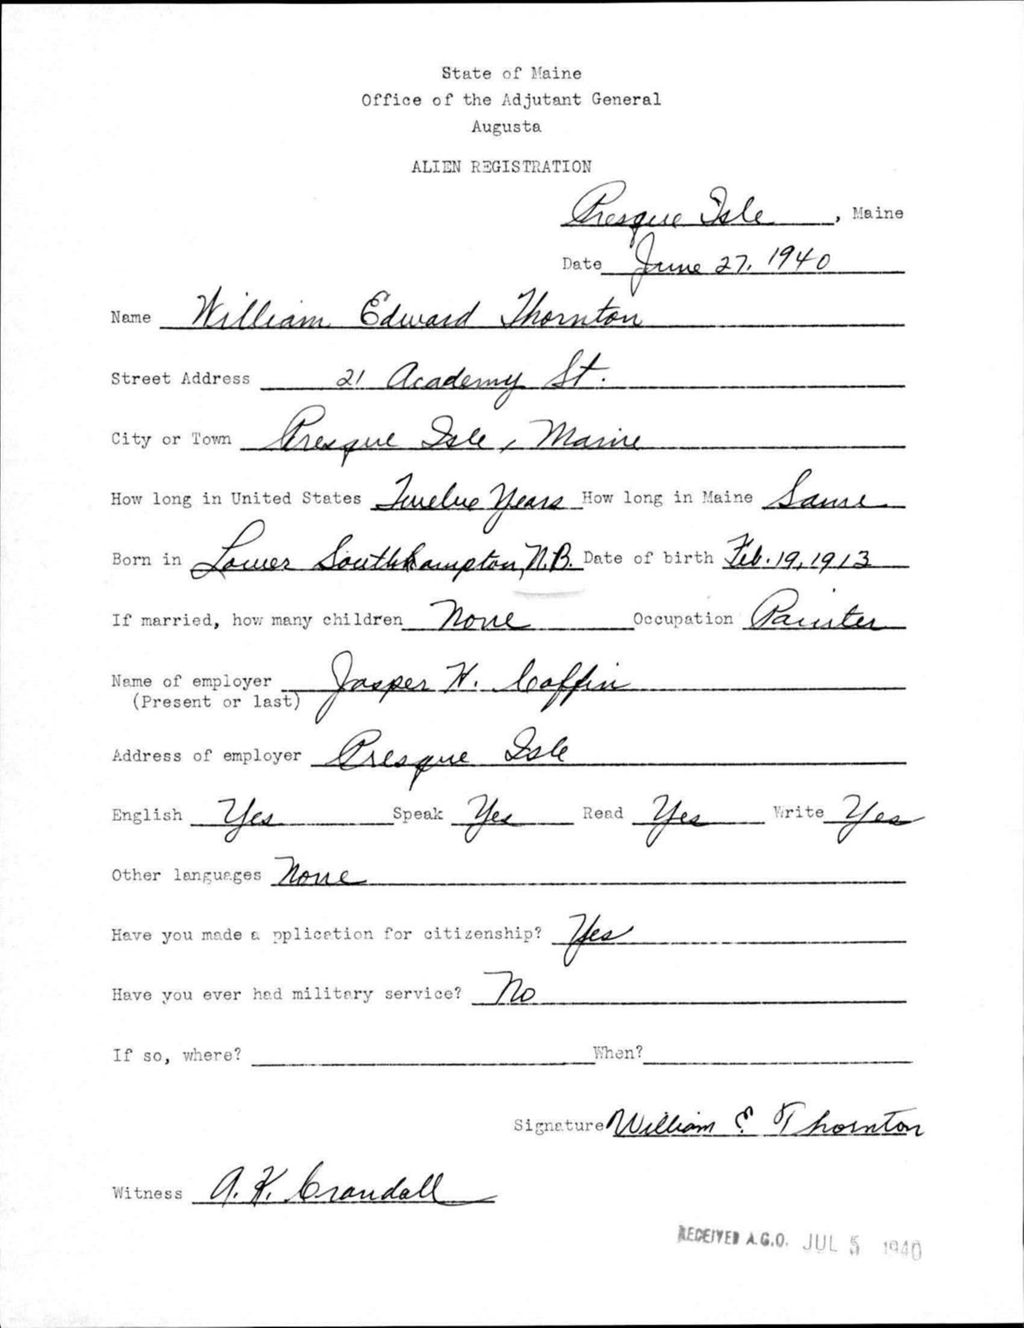 State of Maine
Office of the Adjutant General
Augusta
ALIEN REGISTRATION
Presque Isle, Maine
Date June 27, 1940
Name William Edward Thornton
Street Address 21 Academy St.
City or Town Presque Isle, Maine
How long in United States Twelve Years How long in Maine Same
Born in Lower Southhampton, N.B. Date of birth Feb. 19, 1913
If married, how many children None Occupation Painter
Name of employer Jasper H. Coffin
(Present or last)
Address of employer Presque Isle
English Yes Speak Yes Read Yes Write Yes
Other languages None
Have you made a pplication for citizenship? Yes
Have you ever had military service? No
If so, where? When?
Signature William E. Thornton
Witness A. K. Crandall
RECEIVED A.G.O. JUL 5 1940